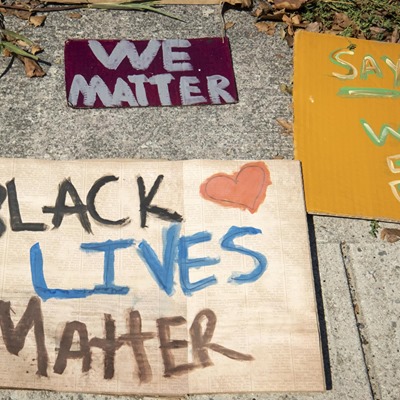 WE
MATTER
SAY
BLACK
LIVES
MATTER